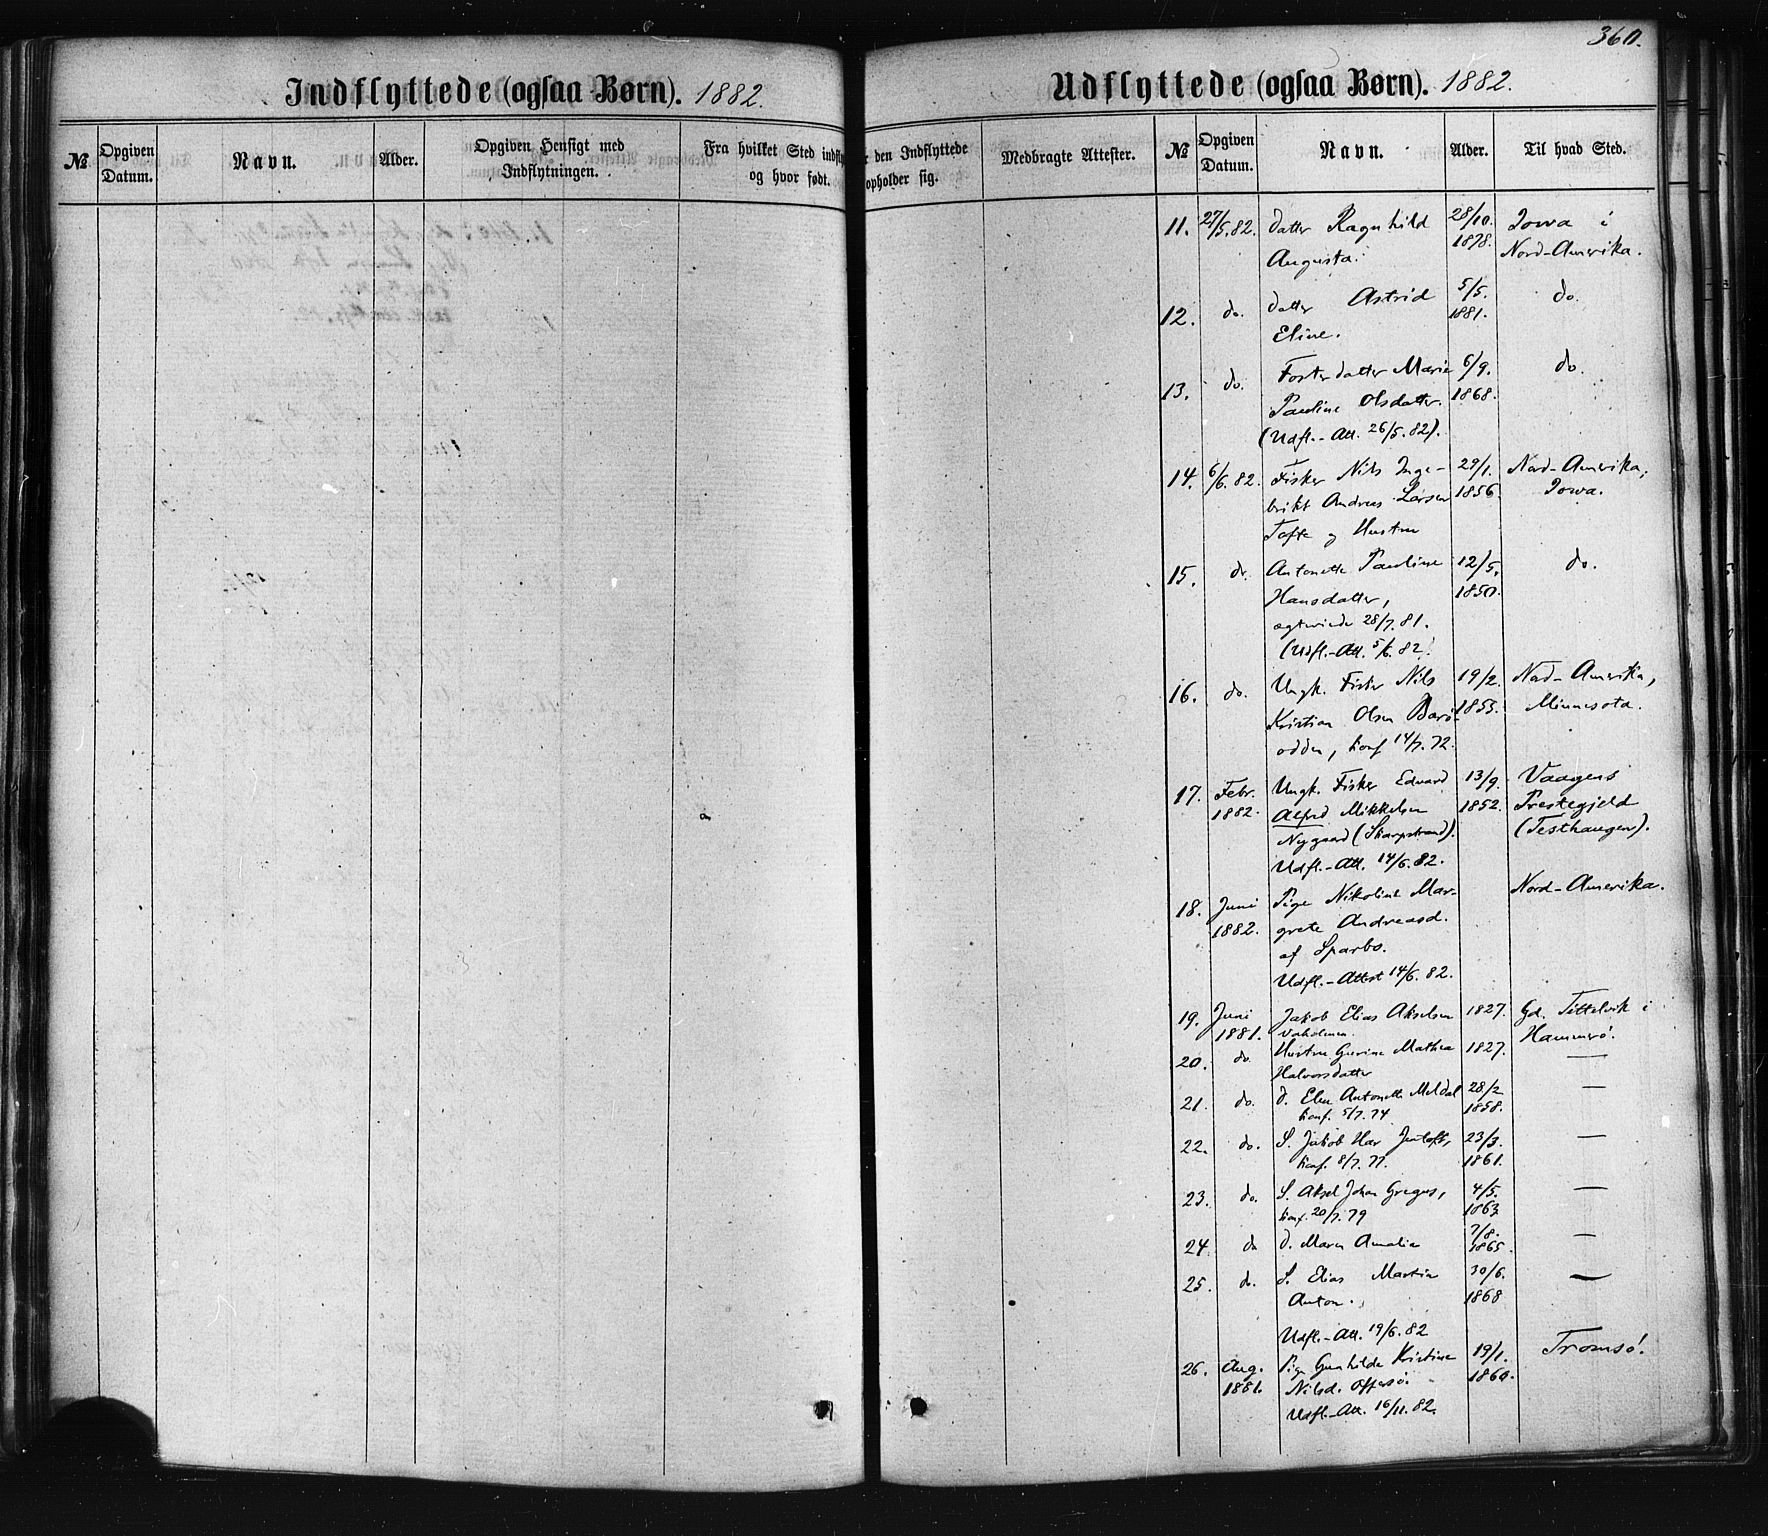 360.
Indflyttede (ogsaa Børn). 1882.
№ Opgiven Datum. Navn. Alder. Opgiven Hensigt med Indflytningen. Fra hvilket Sted indfly og hvor født.
r den Indflyttede opholder sig. Medbragte Attester.
Udflyttede (ogsaa Børn). 1882.
№ Opgiven Datum. Navn. Alder. Til hvad Sted.
11. 27/5.82. datter Ragnhild 28/10. Iowa i
Augusta. 1878. Nord-Amerika.
12. do. datter Astrid 5/5. do.
Eline. 1881.
13. do. Fosterdatter Marie 6/9. do.
Pauline Olsdatter. 1868.
(Udfl.-Att. 26/5.82).
14. 6/6.82. Fisker Nils Inge- 29/1. Nord-Amerika,
brikt Andreas Larsen 1856. Iowa.
Tofte og Hustru
15. do. Antonette Pauline 12/5. do.
Hansdatter, 1850.
ægteviede 28/7.81.
(Udfl.-Att. 5/6.82).
16. do. Ungk. Fisker Nils 19/2. Nord-Amerika,
Kristian Olsen Barø- 1853. Minnesota.
odden, konf. 14/7.72.
17. Febr. Ungk. Fisker Edvard 13/9. Vaagens
1882. Alfred Mikkelsen 1852. Prestegjeld
Nygaard (Skarpstrand). (Festhaugen).
Udfl.-Att. 14/6.82.
18. Juni Pige Nikoline Mar- Nord-Amerika.
1882. grete Andreasd.
af Sparbo.
Udfl.-Attest 14/6.82.
19. Juni Jakob Elias Akselsen 1827. Gd. Tittelvik i
1881. Hammerø.
20. do. Hustru Gurine Mathea 1827. —
Halvorsdatter
21. do. d. Elen Antonette Meldal 28/2 —
konf. 5/7.74 1858.
22. do. S. Jakob Har Jentoft, 23/3. —
konf. 8/7.77. 1861.
23. do. S. Aksel Johan Gregus, 4/5. —
konf. 20/7.79 1863
24. do d. Maren Amalie 7/8. 1865. —
25. do. S. Elias Martin 30/6. —
Anton. 1868
Udfl.-Att. 19/6.82
26. Aug. Pige Gunhilda Kristine 19/1. Tromsø.
1881. Nilsd. Offersø. 1860.
Udfl.-Att. 16/11.82.